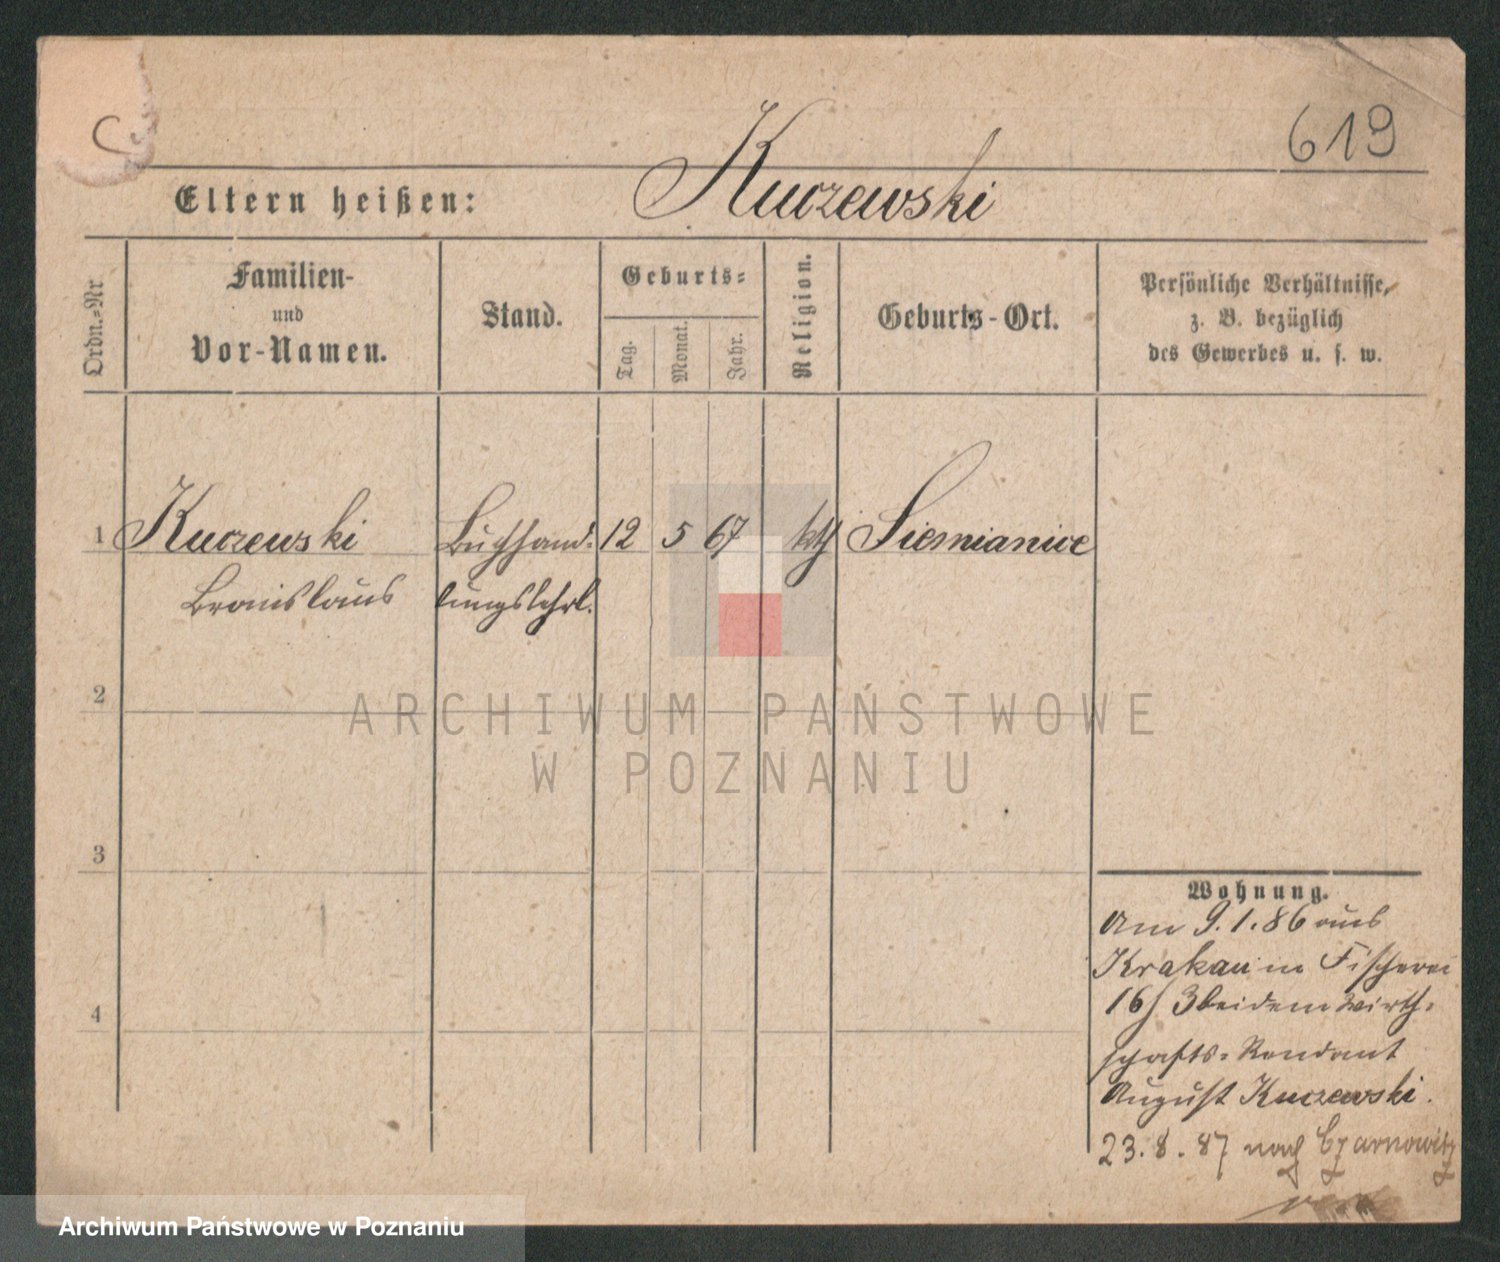 C
619
Eltern heißen: Kuczewski
Ordn.-Nr
Familien-
und
Vor-Namen.
Stand.
Geburts-
Tag.
Monat.
Jahr.
Religion.
Geburts-Ort.
Persönliche Verhältnisse,
z. B. bezüglich
des Gewerbes u. s. w.
1 Kuczewski Buchhand- 12 5 67 kth Siemianice
Bronislaus lungslehrl.
2
ARCHIWUM PAŃSTWOWE
W POZNANIU
3
4
Wohnung.
Am 9.1.86 aus
Krakau in Fischerei
16/3 bei dem Wirth-
schafts-Rendant
August Kuczewski.
23.8.87 nach Czarnowitz
Archiwum Państwowe w Poznaniu